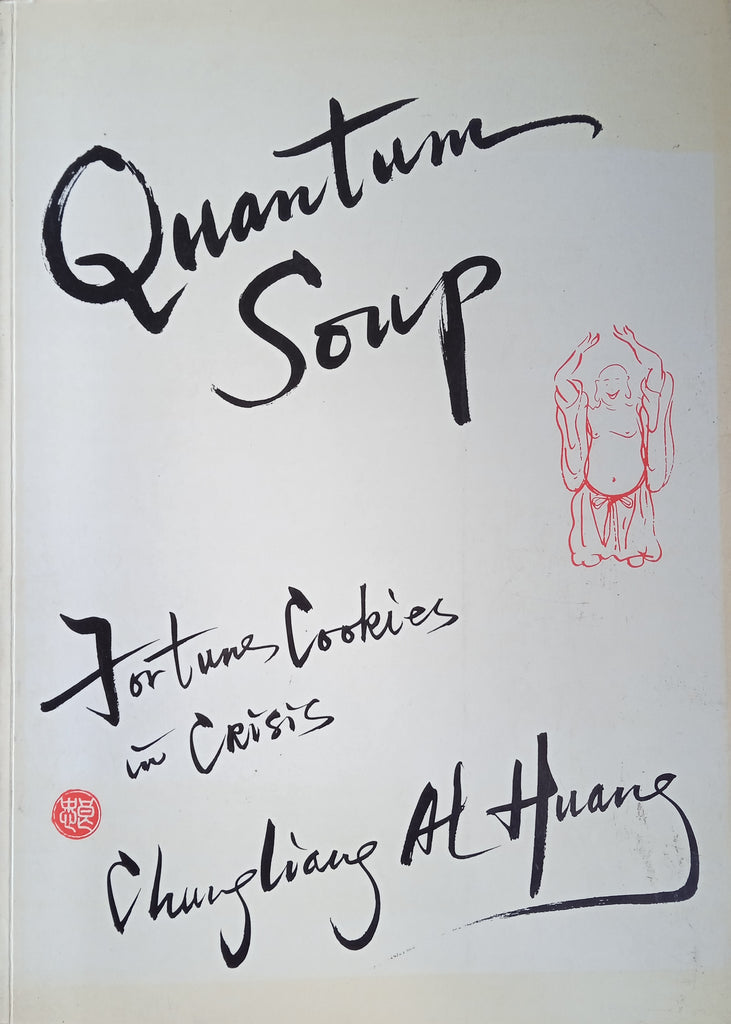 Quantum
Soup
Fortune Cookies
in Crisis
Chungliang Al Huang